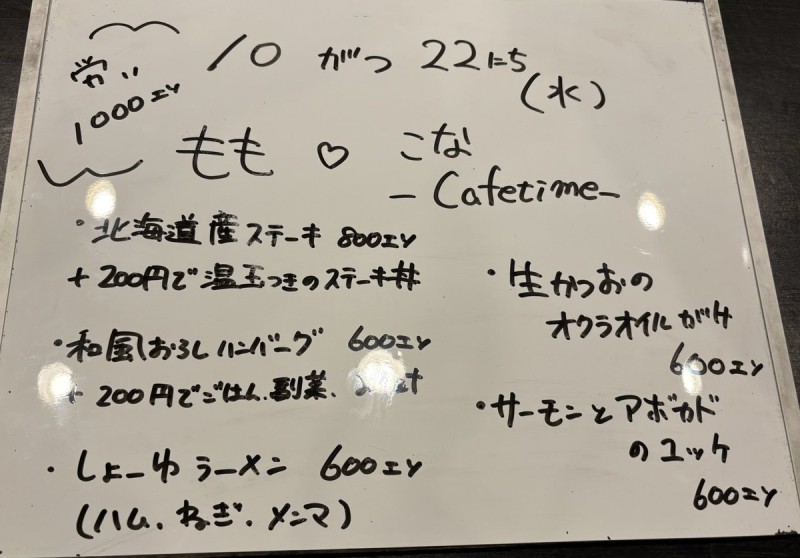 10 がつ 22にち
(水)
1000エン
もも ♡ こな
– Cafetime –
・北海道産ステーキ 800エン
+ 200円で温玉つきのステーキ丼
・和風おろしハンバーグ 600エン
+ 200円でごはん、副菜、
・しょーゆラーメン 600エン
(ハム、ねぎ、メンマ)
・生かつおの
オクラオイルがけ
600エン
・サーモンとアボカド
のユッケ
600エン